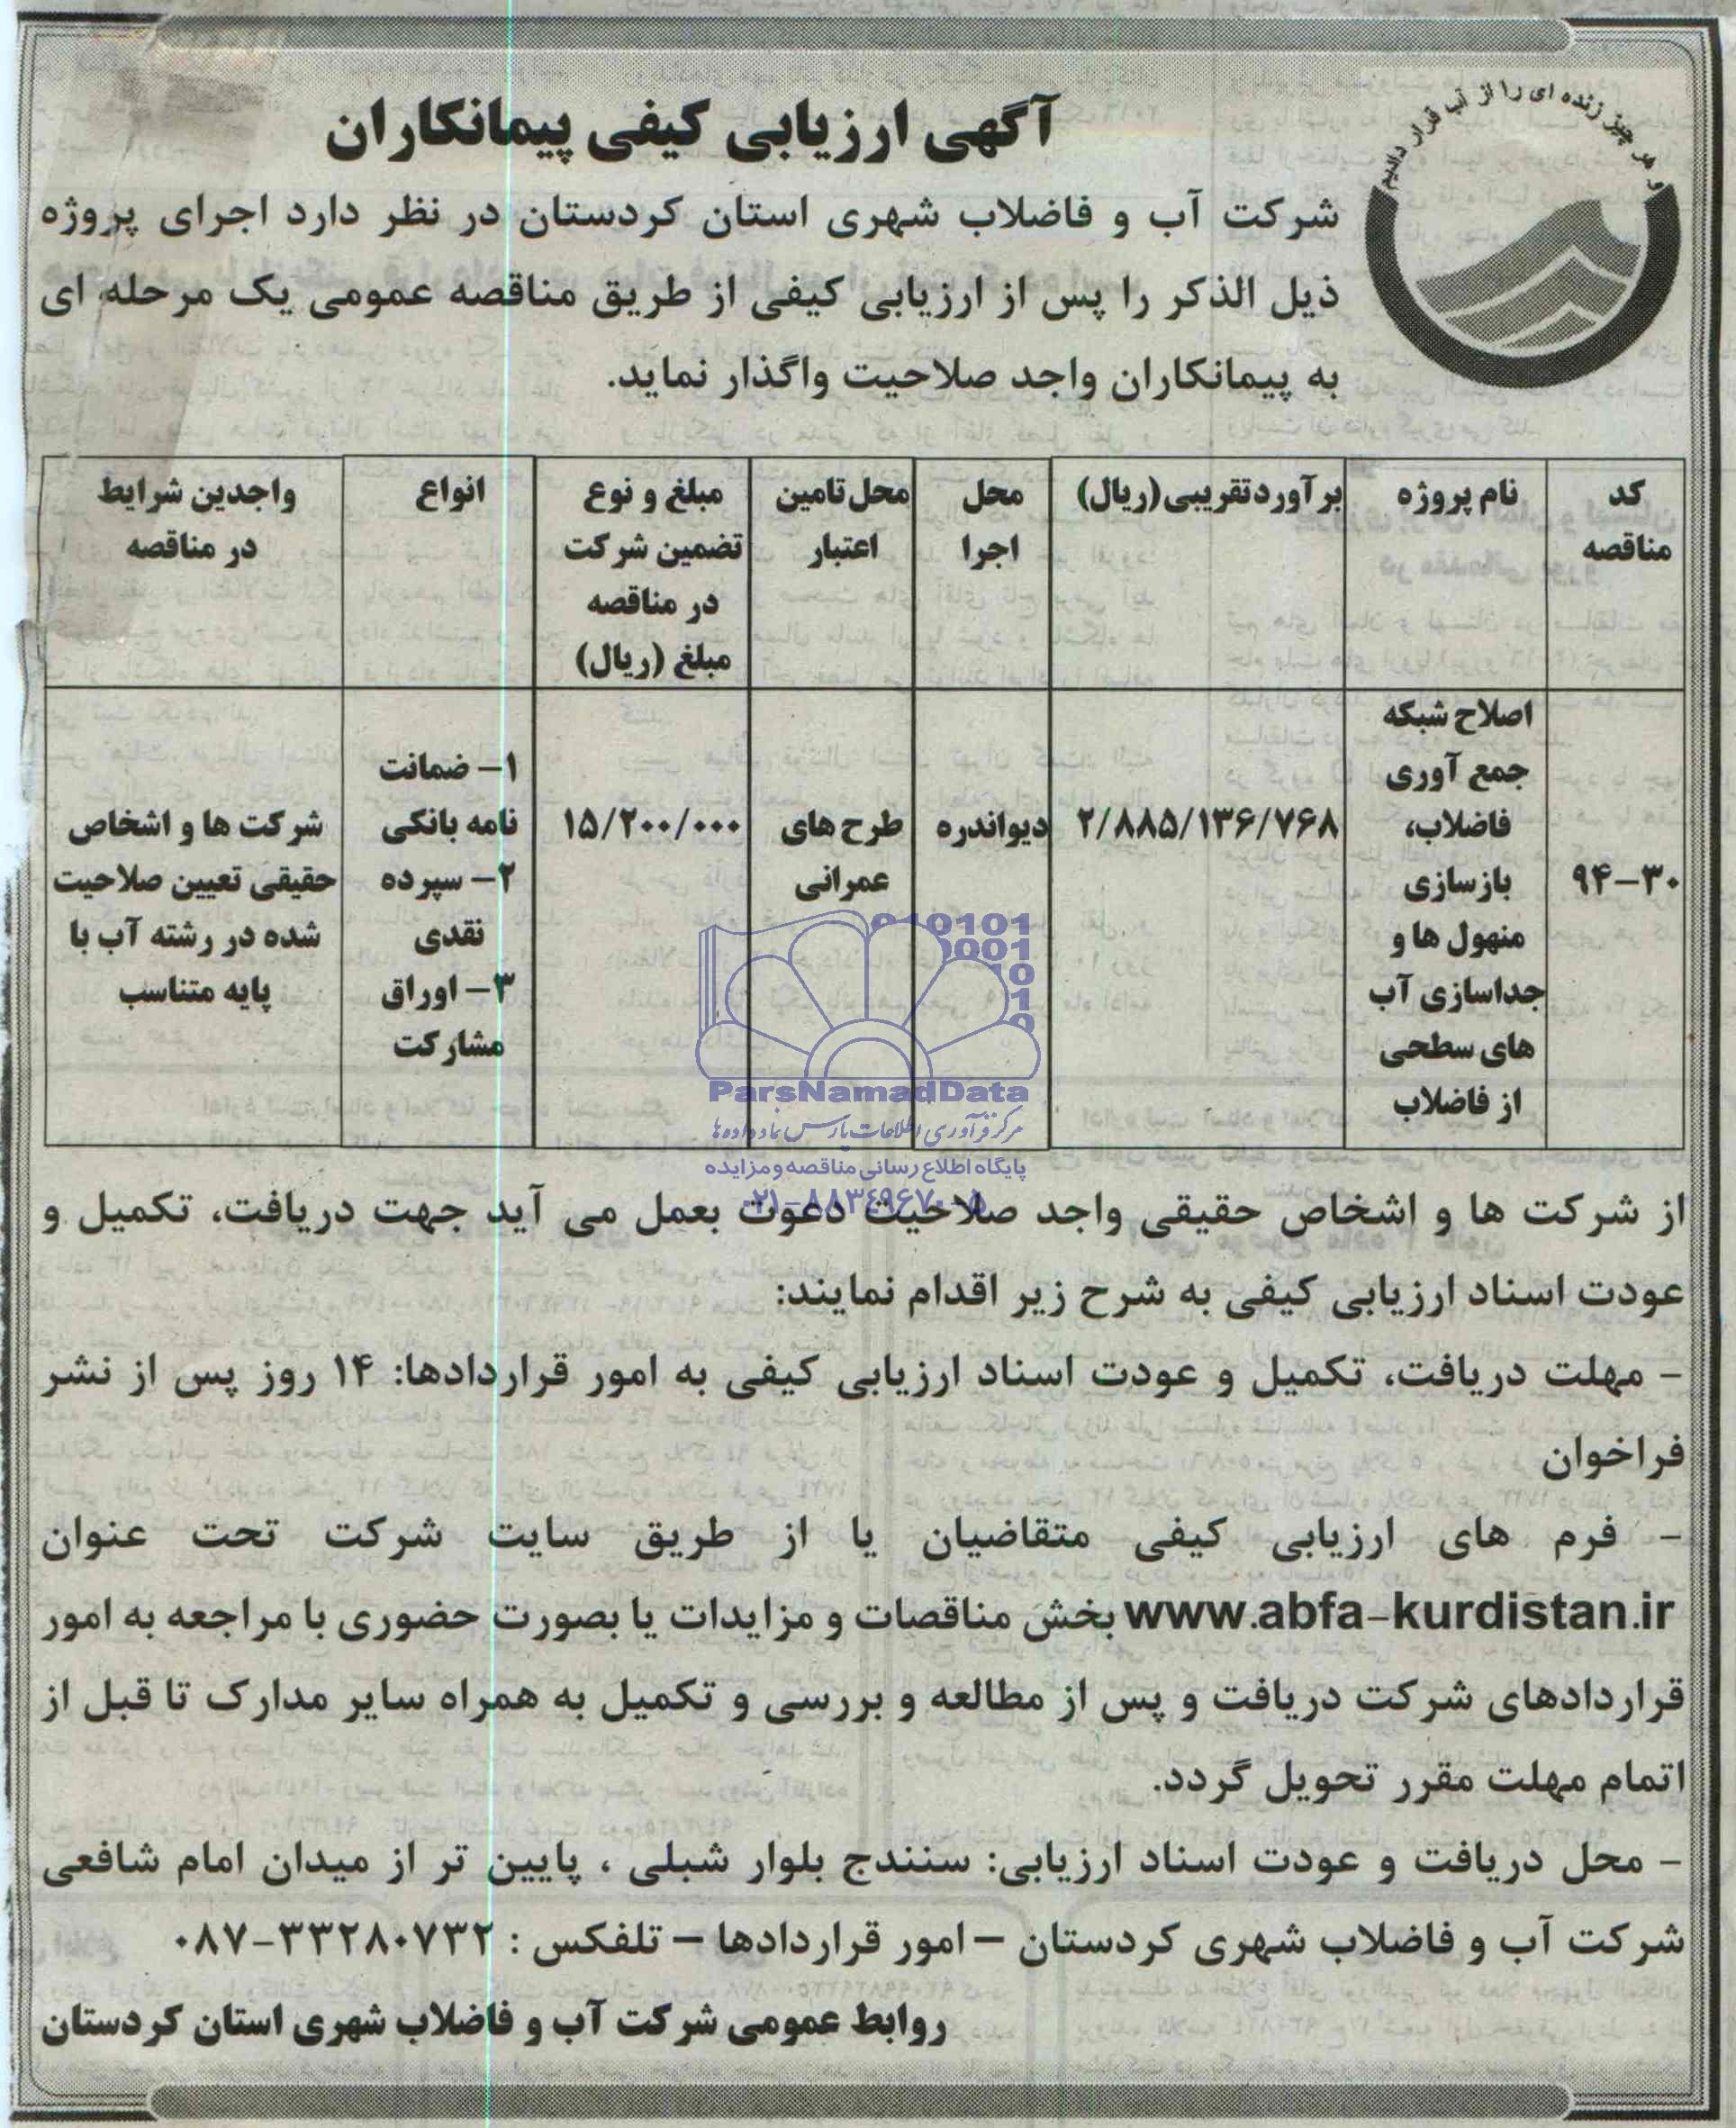 و هر چیز زنده ای را از آب قرار دادیم
آگهی ارزیابی کیفی پیمانکاران
شرکت آب و فاضلاب شهری استان کردستان در نظر دارد اجرای پروژه
ذیل الذکر را پس از ارزیابی کیفی از طریق مناقصه عمومی یک مرحله ای
به پیمانکاران واجد صلاحیت واگذار نماید.
کد
مناقصه
نام پروژه
برآورد تقریبی (ریال)
محل
اجرا
محل تامین
اعتبار
مبلغ و نوع
تضمین شرکت
در مناقصه
مبلغ (ریال)
انواع
واجدین شرایط
در مناقصه
۹۴-۳۰
اصلاح شبکه
جمع آوری
فاضلاب،
بازسازی
منهول ها و
جداسازی آب
های سطحی
از فاضلاب
۲/۸۸۵/۱۳۶/۷۶۸
دیواندره
طرح های
عمرانی
۱۵/۲۰۰/۰۰۰
۱- ضمانت
نامه بانکی
۲- سپرده
نقدی
۳- اوراق
مشارکت
شرکت ها و اشخاص
حقیقی تعیین صلاحیت
شده در رشته آب با
پایه متناسب
010101
0001
10
1
0
ParsNamadData
مرکز فرآوری اطلاعات پارس نماد داده ها
پایگاه اطلاع رسانی مناقصه و مزایده
۰۲۱-۸۸۳۴۹۶۷۰-۵
از شرکت ها و اشخاص حقیقی واجد صلاحیت دعوت بعمل می آید جهت دریافت، تکمیل و
عودت اسناد ارزیابی کیفی به شرح زیر اقدام نمایند:
- مهلت دریافت، تکمیل و عودت اسناد ارزیابی کیفی به امور قراردادها: ۱۴ روز پس از نشر
فراخوان
- فرم های ارزیابی کیفی متقاضیان یا از طریق سایت شرکت تحت عنوان
www.abfa-kurdistan.ir بخش مناقصات و مزایدات یا بصورت حضوری با مراجعه به امور
قراردادهای شرکت دریافت و پس از مطالعه و بررسی و تکمیل به همراه سایر مدارک تا قبل از
اتمام مهلت مقرر تحویل گردد.
- محل دریافت و عودت اسناد ارزیابی: سنندج بلوار شبلی ، پایین تر از میدان امام شافعی
شرکت آب و فاضلاب شهری کردستان - امور قراردادها - تلفکس : ۳۳۲۸۰۷۳۲-۰۸۷
روابط عمومی شرکت آب و فاضلاب شهری استان کردستان